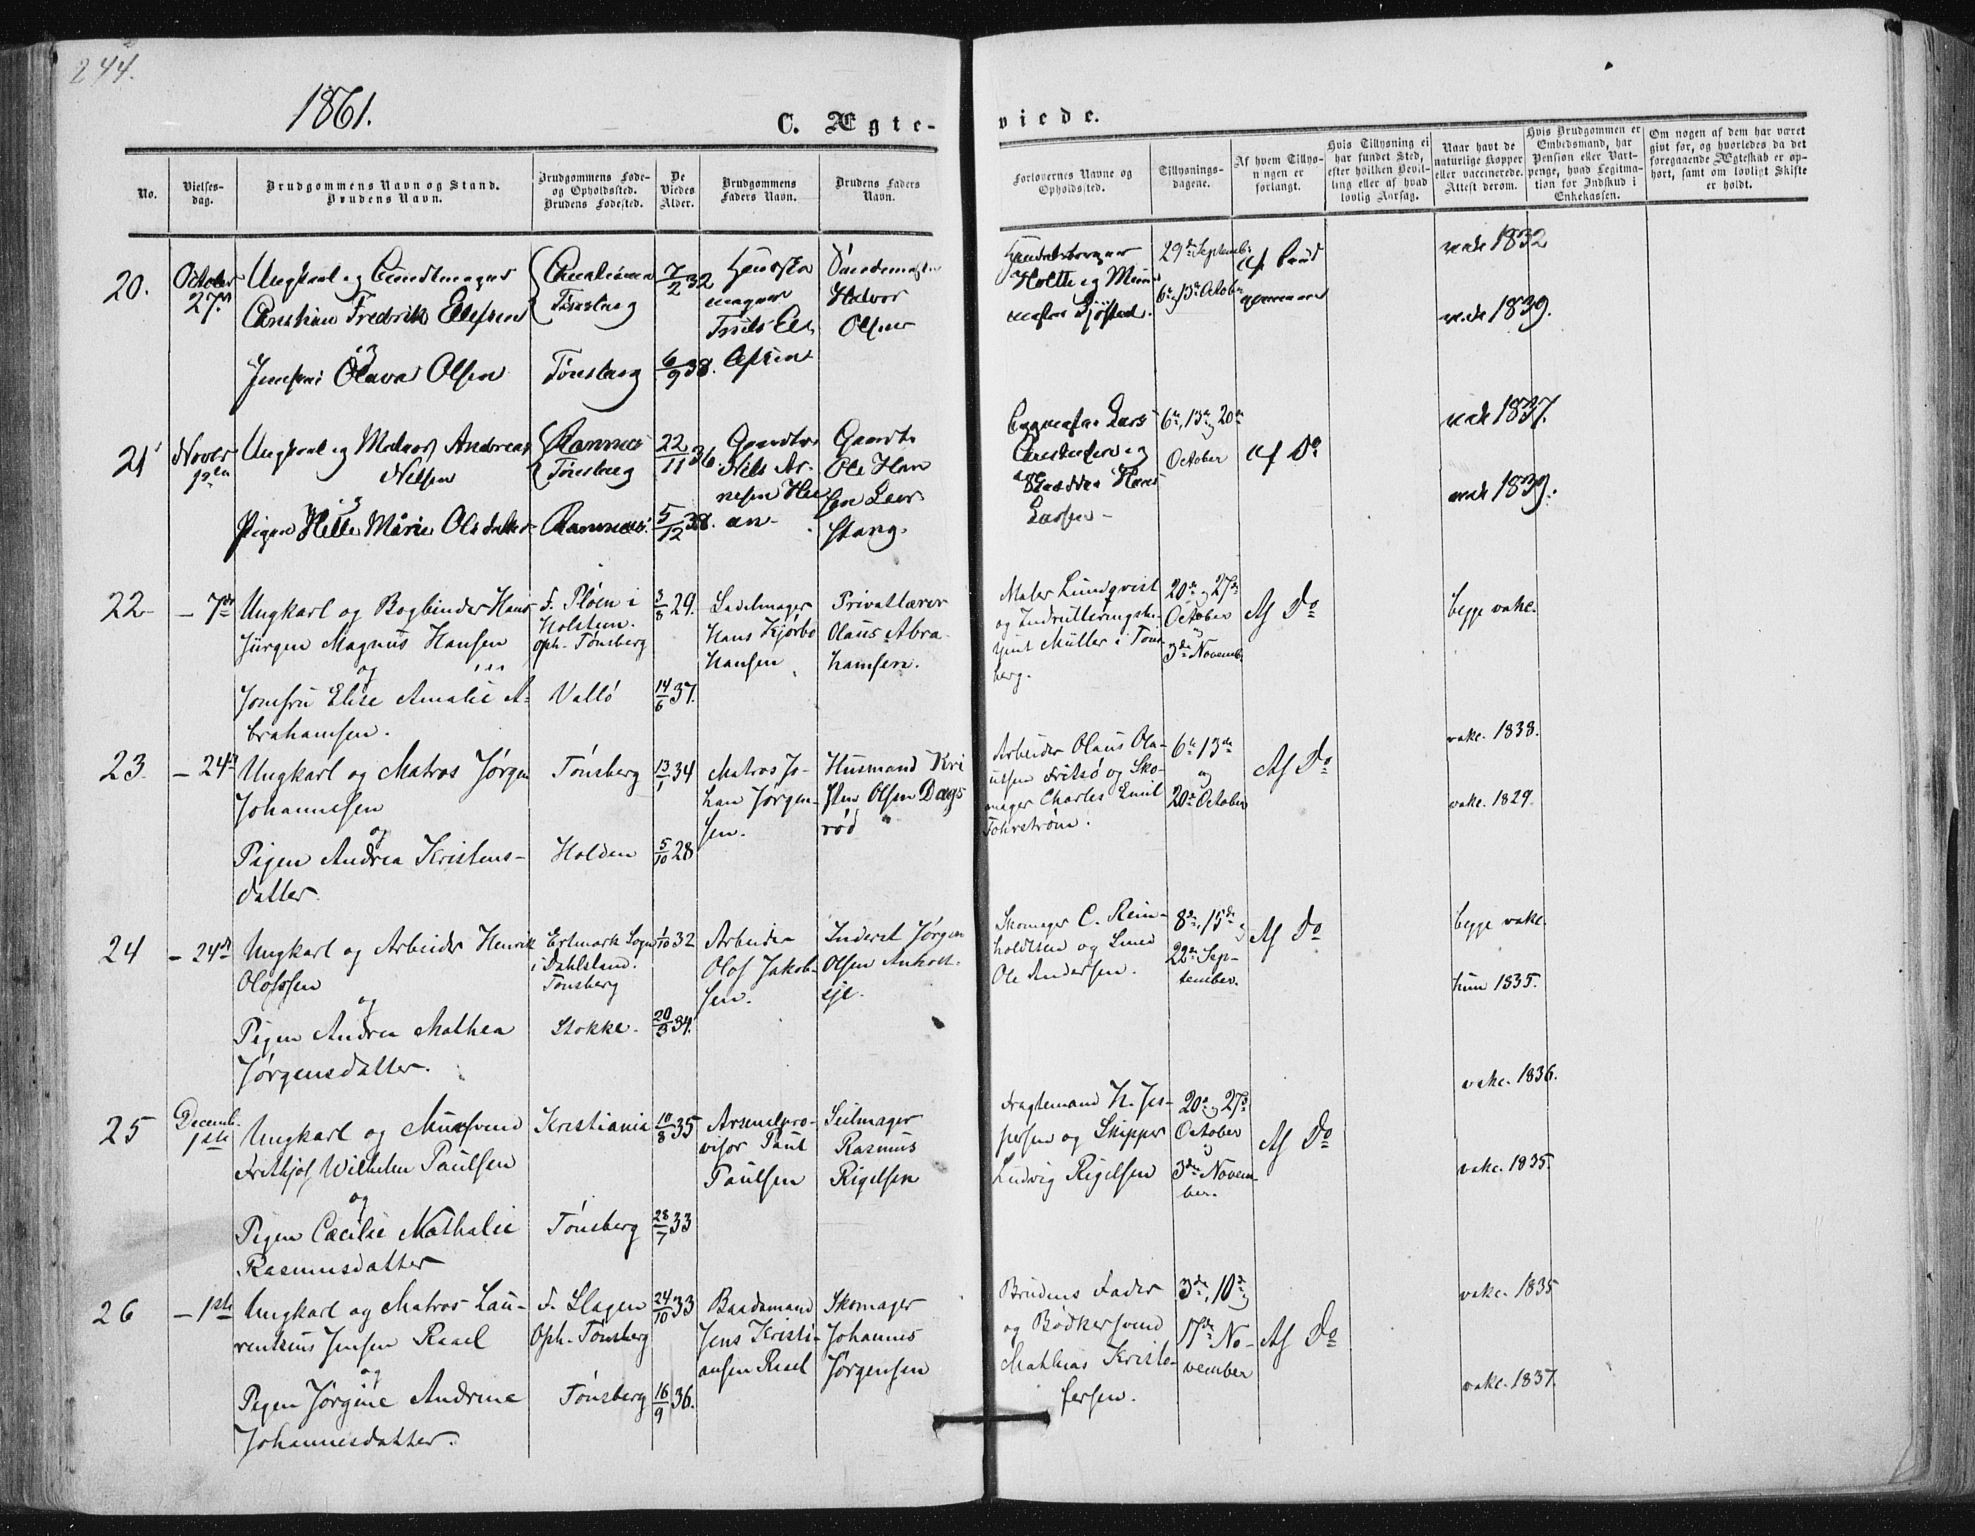 244.
1861.
C. Ægte-
viede.
No.
Vielses-
dag.
Brudgommens Navn og Stand.
Brudens Navn.
Brudgommens Føde-
og Opholdssted.
Brudens Fødested.
De
Viedes
Alder.
Brudgommens
Faders Navn.
Brudens Faders
Navn.
Forlovernes Navne og
Opholdssted.
Tillysnings-
dagene.
Af hvem Tillys-
ningen er
forlangt.
Hvis Tillysning ei
har fundet Sted,
efter hvilken Bevil-
ling eller af hvad
lovlig Aarsag.
Naar havt de
naturlige Kopper
eller vaccinerede.
Attest derom.
Hvis Brudgommen er
Embedsmand, har
Pension eller Vart-
penge, hvad Legitima-
tion for Indskud i
Enkekassen.
Om nogen af dem har været
givt for, og hvorledes da det
foregaaende Ægteskab er op-
hørt, samt om lovligt Skifte
er holdt.
20.
October
27de
Ungkarl og
Christian Fredrik Ellefsen
og
Olava Olsen
Christiania
Tønsberg
Tønsberg
7/2 32
6/9 38.
Halvor
Olsen
Holtte og
29de Septemb.
6te 13de October
af Brud
gommen
vacc 1832
vacc 1839.
21
Novbr
Ungkarl og Matros Andreas
Nilsen
og
Pigen Helle Marie Olsdatter
Ramnæs
Tønsberg
Ramnæs
22/11 36
5/12 38.
Gaardbr
Nils Ar-
nesen
Gaardbr
Ole Han
sen
Lars
Christensen og
Hans
Larsen
6te, 13de og 20de
October
af Do
vacc 1837.
vacc 1839.
22
- 7de
Ungkarl og Bogbinder Hans
Jürgen Magnus Hansen
og
Jomfru Elise Amalie A-
brahamsen.
F. Pløen i
Holsteen.
Oph. Tønsberg
Vallø
3/8 29.
14/6 37.
Sadelmager
Hans Kjørbo
Hansen
Privatlærer
Olaus Abra
hamsen.
Maler Lundqvist
og Indrulleringsbe-
tjent Müller i Tøns
berg.
20de og 27de
October
og
3de Novemb.
Af Do
begge vakc.
23.
- 24de
Ungkarl og Matros Jørgen
Johannesen
og
Pigen Andrea Kristens-
datter.
Tønsberg
Holden
13/1 34
5/10 28
Matros Jo-
han Jørgen-
sen.
Husmand Kri
sten Olsen Dags
rød
Arbeider Olaus Ola-
ussen Fritsø og Sko-
mager Charles Emil
6te 13de
og
20de October
Af Do
vakc. 1838.
vakc. 1829.
24
- 24de
Ungkarl og Arbeider Henrik
Olofsen
og
Pigen Andrea Mathea
Jørgensdatter.
Sogn
i Dahlsland.
Tønsberg
Stokke.
1/10 32
20/3 34.
Arbeider
Olof Jakob-
sen.
Inderst Jørgen
Olsen Anholt-
eje.
Skomager C. Rein-
holdtsen og Smed
Ole Andersen.
8de, 15de og
22de Sep-
tember.
Af Do
begge vakc.
hun 1835.
25
Decemb.
1ste
Ungkarl og Mursvend
Frithjof Wilhelm Paulsen
og
Pigen Cæcilie Mathalie
Rasmusdatter
Kristiania
Tønsberg
10/8 35
28/7 33
Arsenalpro-
visor Paul
Paulsen
Seilmager
Rasmus
Rigelsen
Fragtemand H. Jes-
persen og Skipper
Ludvig Rigelsen
20de og 27de
October
og
3de Novem-
ber.
Af Do
vakc. 1836.
vakc. 1835.
26
- 1ste
Ungkarl og Matros Lau-
rentsius Jensen Raael
og
Pigen Jørgine Andrine
Johannesdatter.
F. Slagen
Oph. Tønsberg
Tønsberg
24/10 33
16/9 36.
Baadsmand
Jens Kristi-
ansen Raael
Skomager
Johannes
Jørgensen
Brudens Fader
og Bødkersvend
Mathias Kristo-
fersen.
3de, 10de og
17de No-
vember
Af Do
vakc. 1835
vakc. 1837.